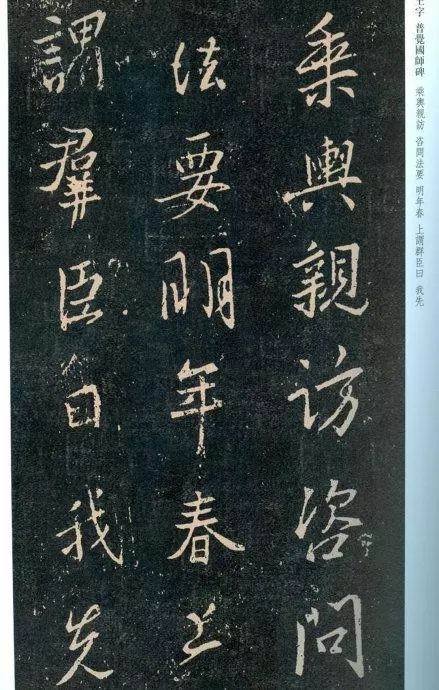 乘輿親訪咨問
法要明年春上
謂羣臣曰我先
王字 普覺國師碑 乘輿親訪 咨問法要 明年春 上謂群臣曰 我先